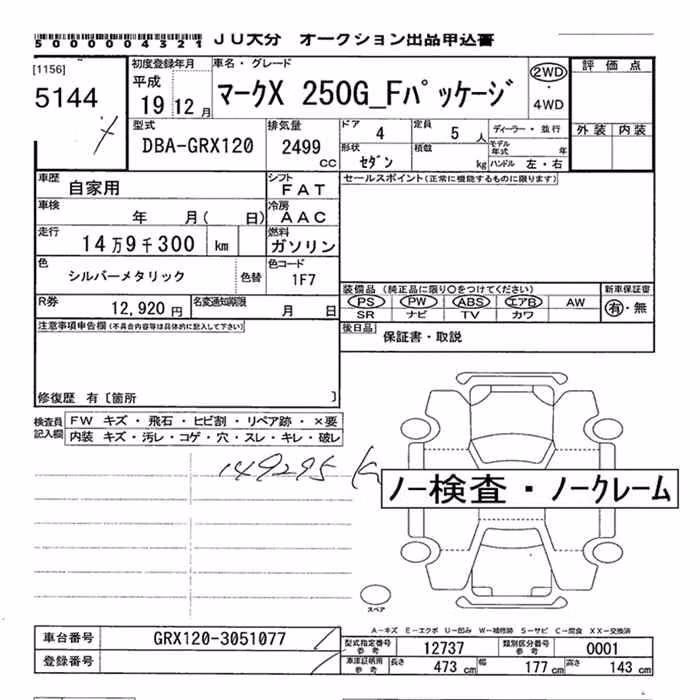 5000004321 JU大分 オークション出品申込書
[1156] 初度登録年月 車名・グレード 評価点
5144 平成 19 12 月 マークX 250G_Fパッケージ 2WD ・ 4WD
外装 内装
型式 排気量 ドア 定員 ディーラー・並行
DBA-GRX120 2499 cc 4 5 人 モデル年式 年
形状 積載 ハンドル 左・右
セダン kg
車歴 自家用 シフト FAT セールスポイント(正常に機能するものに限ります)
車検 年 月( 日) 冷房 AAC
走行 14万9千300 km 燃料 ガソリン
色 シルバーメタリック 色替 色コード 1F7
装備品(純正品に限り○をつけてください) 新車保証書
R券 12,920円 名変通知期限 月 日 PS PW ABS エアB AW 有・無
SR ナビ TV カワ
注意事項申告欄(不具合内容等は具体的に記入して下さい) 後日品 保証書・取説
修復歴 有〔箇所 〕
検査員記入欄 FW キズ・飛石・ヒビ割・リペア跡・×要
内装 キズ・汚レ・コゲ・穴・スレ・キレ・破レ
149295 K
ノー検査・ノークレーム
スペア
A-キズ E-エクボ U-凹み W-補修跡 S-サビ C-腐食 XX-交換済
車台番号 GRX120-3051077 型式指定番号参考 12737 類別区分番号参考 0001
登録番号 車庫証明用参考 長さ 473 cm 幅 177 cm 高さ 143 cm